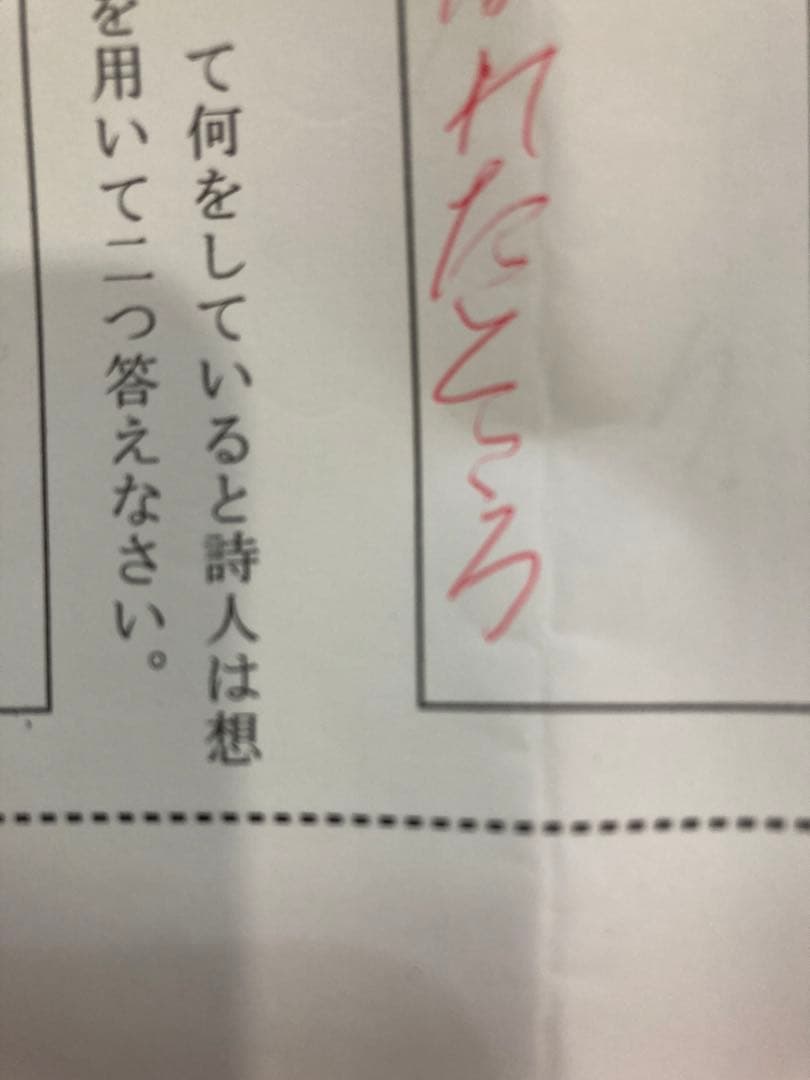 れたところ
て何をしていると詩人は想
を用いて二つ答えなさい。